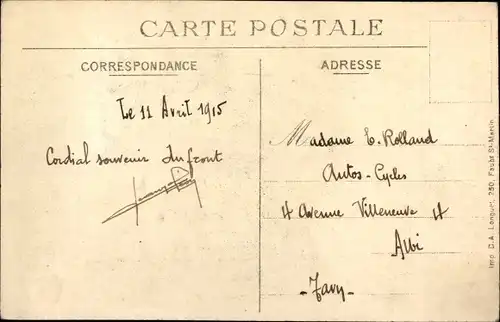 CARTE POSTALE
CORRESPONDANCE
ADRESSE
Le 11 Avril 1915
Cordial souvenir du front
Madame E. Rolland
Autos-Cycles
4 Avenue Villeneuve 4
Albi
- Tarn -
Imp. D.A. Longuet, 250, Faubg St-Martin